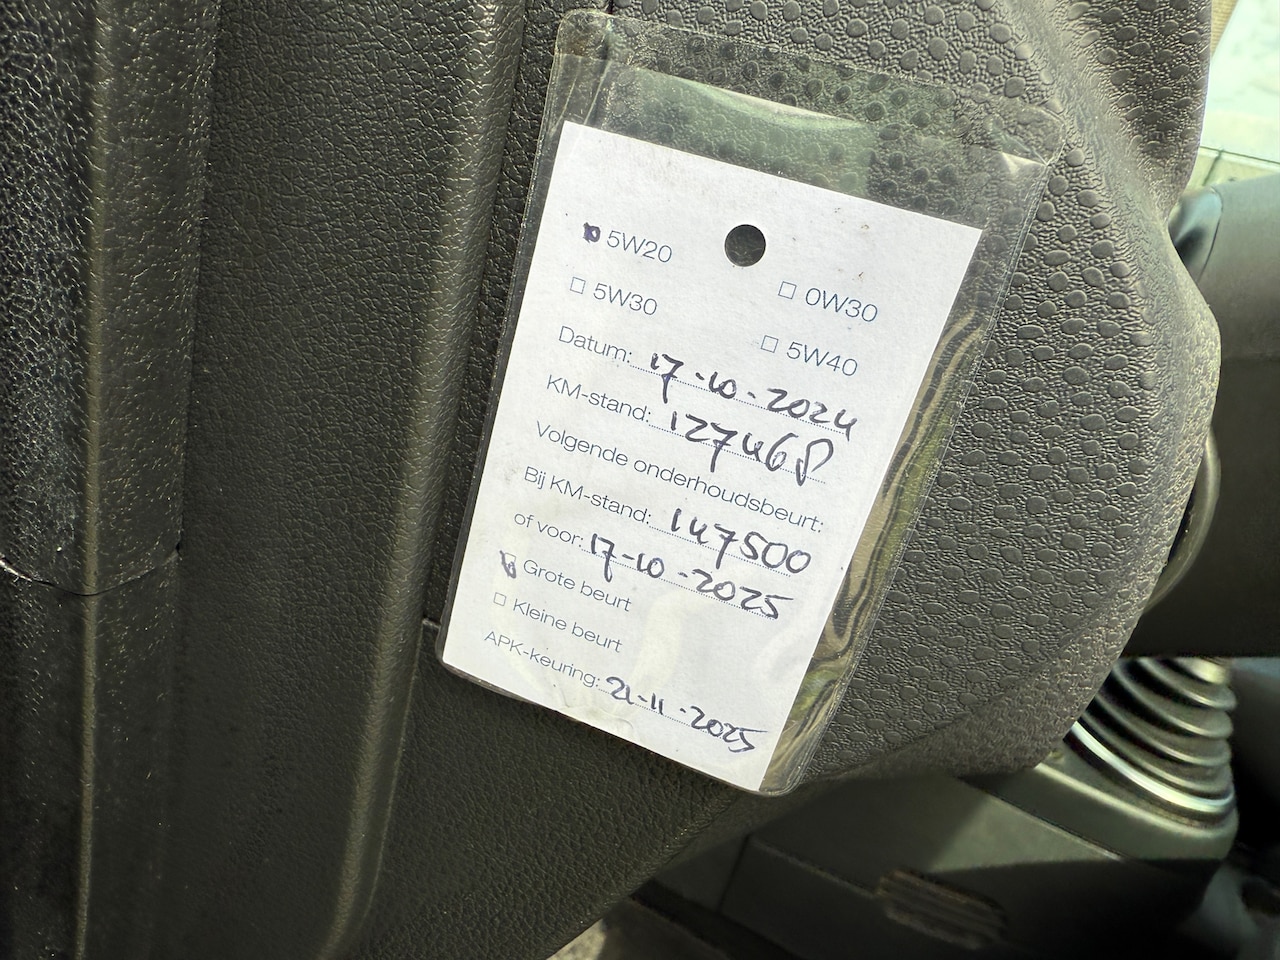 5W20
0W30
5W30
5W40
Datum: 17-10-2024
KM-stand: 127468
Volgende onderhoudsbeurt:
Bij KM-stand: 147500
of voor: 17-10-2025
Grote beurt
Kleine beurt
APK-keuring: 21-11-2025